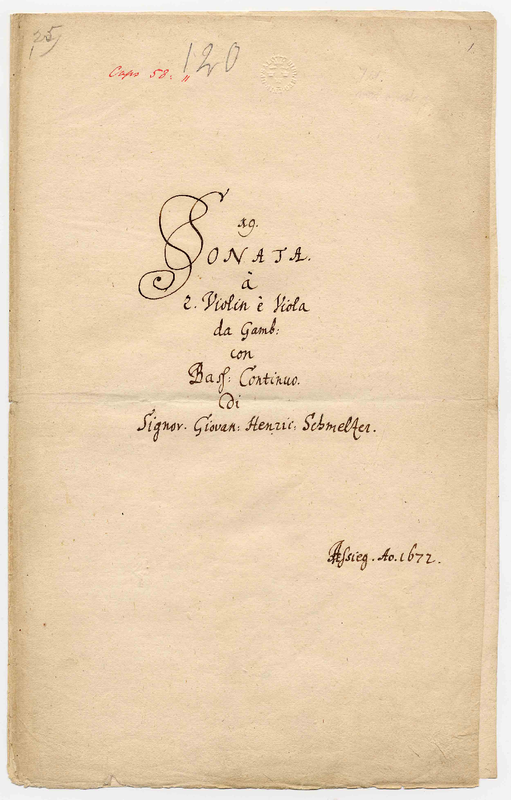 25)
Caps 58: "
120
19.
SONATA.
à
2. Violin è Viola
da Gamb:
con
Bass: Continuo.
Di
Signor. Giovan: Henric: Schmeltzer.
Assieg. Ao. 1672.